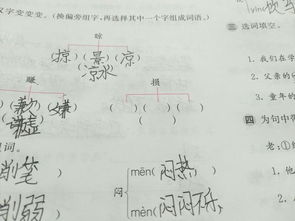 汉字变变变。(换偏旁组字,再选择其中一个字组成词语。)
晾
(掠)(景)(凉)
(凉水)
赚
(歉)(嫌)
(谦虚)
损
( )( )( )
( )
词。
削笔
削弱
闷
mēn(闷热)
mèn(闷闷不乐)
三 选词填空。
1. 我们在学
2. 父亲的
3. 童年的
四 为句中带
老:①
1. 他
2.
3.